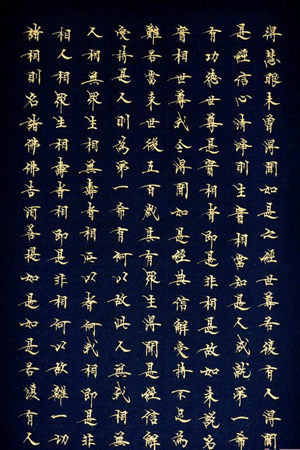 得慧眼未曾得聞如是之經世尊若復有人得聞
是經信心清淨則生實相當知是人成就第一希
有功德世尊是實相者即是非相是故如來說名
實相世尊我今得聞如是經典信解受持不足為
難若當來世後五百歲其有眾生得聞是經信解
受持是人則為第一希有何以故此人無我相無
人相無眾生相無壽者相所以者何我相即是非
相人相眾生相壽者相即是非相何以故離一切
諸相則名諸佛佛告須菩提如是如是若復有人